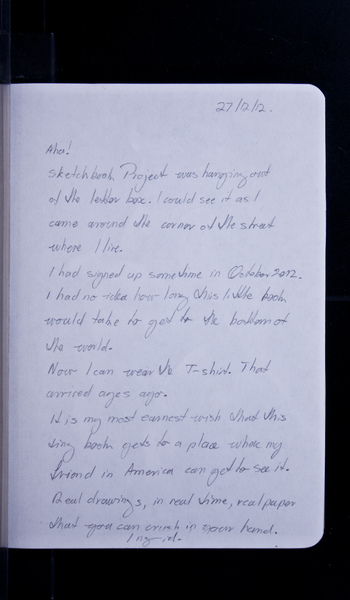 27/12/12.
Aha!
Sketchbook Project was hanging out
of the letter box. I could see it as I
came around the corner of the street
where I live.
I had signed up sometime in October 2012.
I had no idea how long this little book
would take to get to the bottom of
the world.
Now I can wear the T-shirt. That
arrived ages ago.
It is my most earnest wish that this
tiny book gets to a place where my
friend in America can get to see it.
Real drawings, in real time, real paper
that you can crush in your hand.
Ingrid.